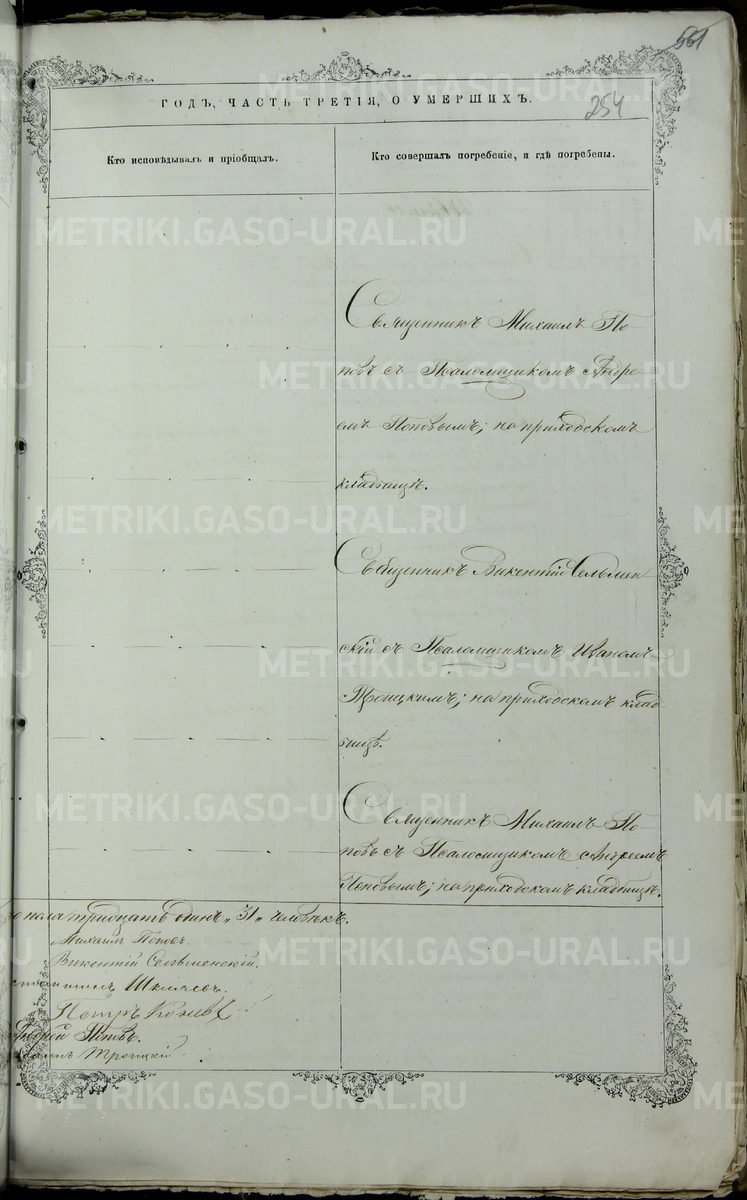 561
254
ГОДЪ, ЧАСТЬ ТРЕТІЯ, О УМЕРШИХЪ.
Кто исповѣдывалъ и пріобщалъ.
Кто совершалъ погребеніе, и гдѣ погребены.
Священникъ Михаилъ По-
повъ съ Псаломщикомъ Андре
емъ Поповымъ; на приходскомъ
кладбищѣ.
Священникъ Викентій Сельмен
скій съ Псаломщикомъ Иваномъ
Троицкимъ; на приходскомъ клад
бищѣ.
Священникъ Михаилъ По-
повъ съ Псаломщикомъ Андреемъ
Поповымъ; на приходскомъ кладбищѣ.
пола тридцать одинъ „31„ человѣкъ.
Михаилъ Поповъ
Викентій Сельменскій.
Шкляевъ.
Петръ
Андрей Поповъ.
Троицкій
METRIKI.GASO-URAL.RU